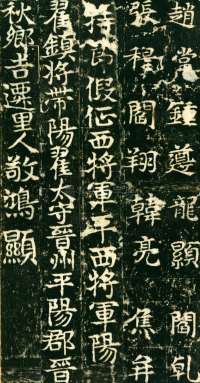 趙常鍾遵龍顯閻乹
張稚閻翔韓亮焦弁
持節假征西將軍平西將軍陽
翟鎮將帶陽翟太守晉州平陽郡晉
秋鄉吉遷里人敬鴻顯